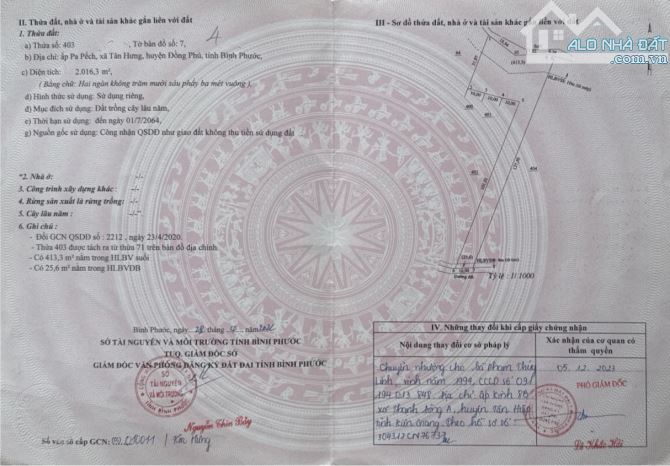 II. Thửa đất, nhà ở và tài sản khác gắn liền với đất
1. Thửa đất:
a) Thửa số: 403 , Tờ bản đồ số: 7,
b) Địa chỉ: ấp Pa Pếch, xã Tân Hưng, huyện Đồng Phú, tỉnh Bình Phước,
c) Diện tích: 2.016,3 m²,
( Bằng chữ: Hai ngàn không trăm mười sáu phẩy ba mét vuông)
d) Hình thức sử dụng: Sử dụng riêng,
đ) Mục đích sử dụng: Đất trồng cây lâu năm,
e) Thời hạn sử dụng: đến ngày 01/7/2064,
g) Nguồn gốc sử dụng: Công nhận QSDĐ như giao đất không thu tiền sử dụng đất
*2. Nhà ở: -/-
3. Công trình xây dựng khác: -/-
4. Rừng sản xuất là rừng trồng: -/-
5. Cây lâu năm: -/-
6. Ghi chú:
- Đổi GCN QSDĐ số : 2212 , ngày 23/4/2020.
- Thửa 403 được tách ra từ thửa 71 trên bản đồ địa chính.
- Có 413,3 m² nằm trong HLBV suối
- Có 25,6 m² nằm trong HLBVĐB
Bình Phước, ngày 28 tháng
SỞ TÀI NGUYÊN VÀ MÔI TRƯỜNG TỈNH BÌNH PHƯỚC
TUQ. GIÁM ĐỐC SỞ
GIÁM ĐỐC VĂN PHÒNG ĐĂNG KÝ ĐẤT ĐAI TỈNH BÌNH PHƯỚC
SỞ
TÀI NGUYÊN
VÀ MÔI TRƯỜNG
TỈNH BÌNH PHƯỚC
Nguyễn Thìn Bảy
Số vào sổ cấp GCN:
4
III - Sơ đồ thửa đất, nhà ở và tài sản khác gắn liền với đất
ALO NHÀ ĐẤT
.com.vn
403
404
Đường đất
Tỷ lệ : 1/ 1000
IV. Những thay đổi khi cấp giấy chứng nhận
Nội dung thay đổi cơ sở pháp lý
Xác nhận của cơ quan có thẩm quyền
Chuyển nhượng cho bà Phạm Thùy
Linh, sinh năm 1994, CCCD số
địa chỉ ấp Kinh 8B
xã Thạnh Đông A, huyện Tân Hiệp
tỉnh Kiên Giang theo hồ sơ số
05. 12. 2023
PHÓ GIÁM ĐỐC
Lê Khắc Hải